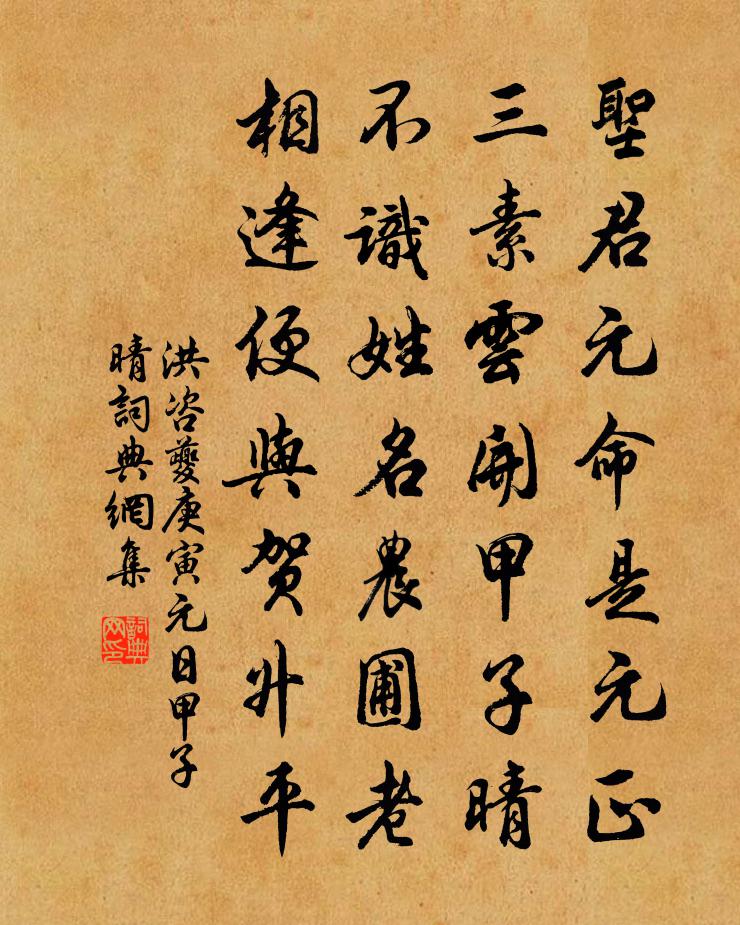 聖君元命是元正
三素雲開甲子晴
不識姓名農圃老
相逢便與賀升平
洪咨夔庚寅元日甲子
晴詞典網集
詞典
网印